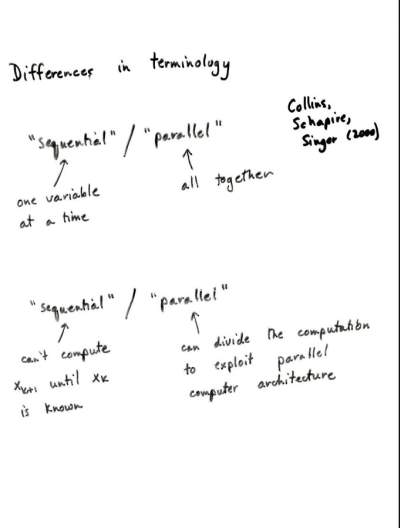 Differences in terminology
Collins,
Schapire,
Singer (2000)
"sequential" / "parallel"
one variable
at a time
all together
"sequential" / "parallel"
can't compute
xk+1 until xk
is known
can divide the computation
to exploit parallel
computer architecture